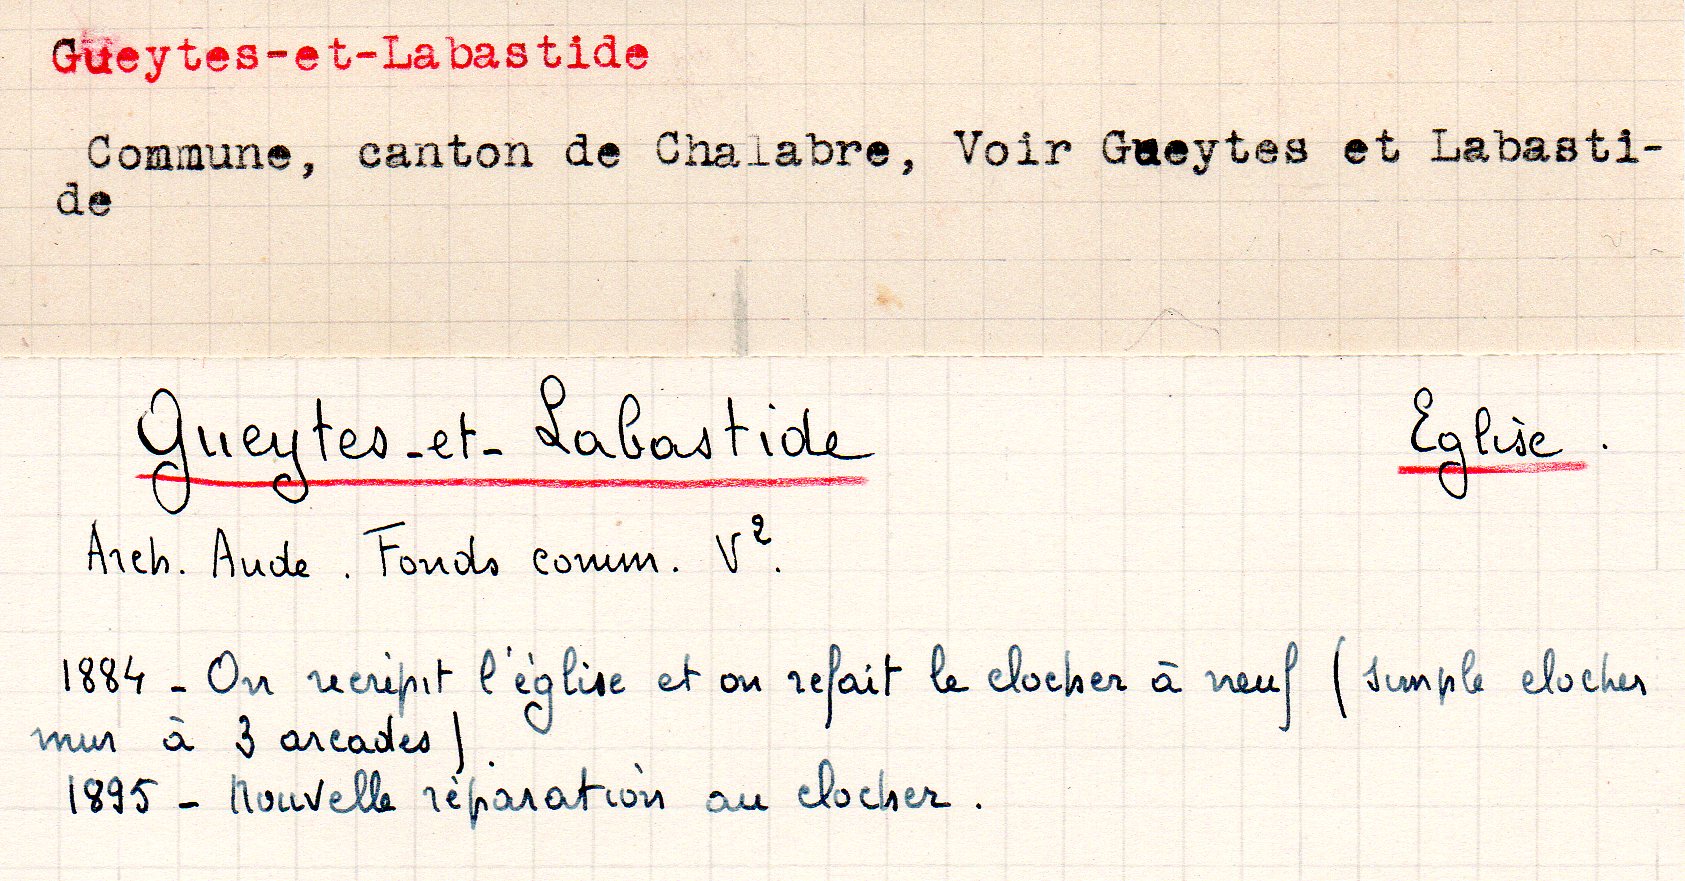 Gueytes-et-Labastide
Commune, canton de Chalabre, Voir Gueytes et Labasti-
de
Gueytes-et-Labastide
Eglise.
Arch. Aude. Fonds comm. V².
1884 - On recrépit l'église et on refait le clocher à neuf (simple clocher
mur à 3 arcades).
1895 - Nouvelle réparation au clocher.